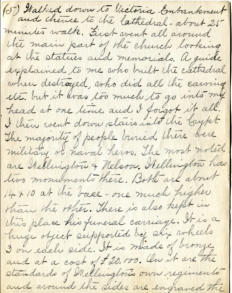 (37) Walked down to Victoria Embankment
and thence to the Cathedral - about 25
minutes walk. First went all around
the main part of the church looking
at the statues and memorials. A guide
explained to me who built the cathedral
when destroyed, who did all the carving
etc. but it was too much to go into my
head at one time and I forgot it all.
I then went down stairs into the Crypt
The majority of people buried there were
military or naval heros. The most noted
are Wellington & Nelson. Wellington has
two monuments there. Both are about
14 x 10 at the base - one much higher
than the other. There is also kept in
this place his funeral carriage. It is a
huge object supported by six wheels
3 on each side. It is made of bronze
and at a cost of £20,000. On it are the
standards of Wellington's own regiments
and around the sides are engraved the